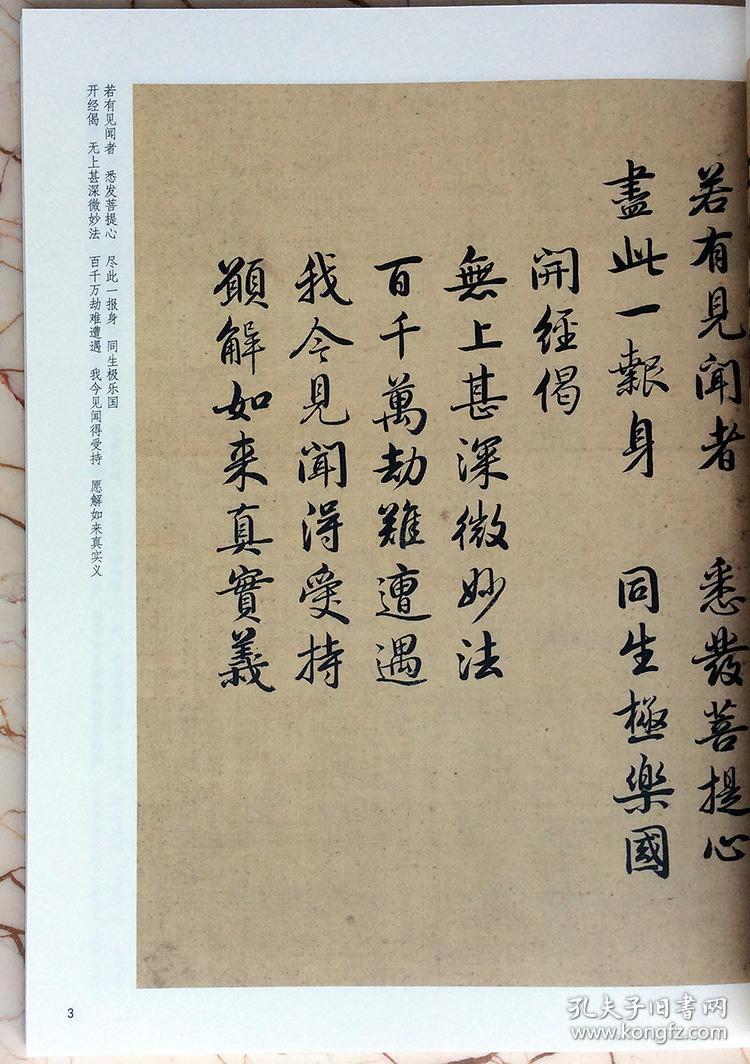 若有見聞者 悉發菩提心
盡此一報身 同生極樂國
開經偈
無上甚深微妙法
百千萬劫難遭遇
我今見聞得受持
願解如来真實義
若有见闻者 悉发菩提心 尽此一报身 同生极乐国
开经偈 无上甚深微妙法 百千万劫难遭遇 我今见闻得受持 愿解如来真实义
3
孔夫子旧书网
www.kongfz.com